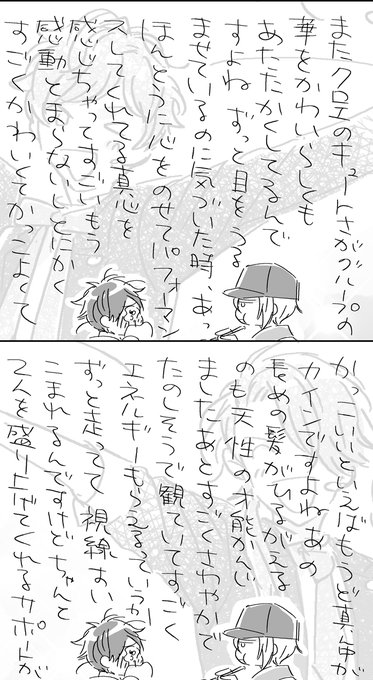 またクロエのキュートさがグループの
華をかわいらしくも
あたたかくしてるんで
すよね ずっと目をうる
ませているのに気づいた時、あっ
ほんとうに心をのせてパフォーマン
スしてくれてる真心を
感じちゃってすごいもう
感動とまらないしとにかく
すごくかわいくてかっこよくて
かっこいいといえばもうど真中が
カインですよねあの
長めの髪がひるがえる
のも天性の才能かんじ
ましたあとすごくさわやかで
たのしそうで観ていてすごく
エネルギーもらえるっていうか
ずっと走ってて 視線すい
こまれるんですけどちゃんと
2人を盛り上げてくれるサポートが